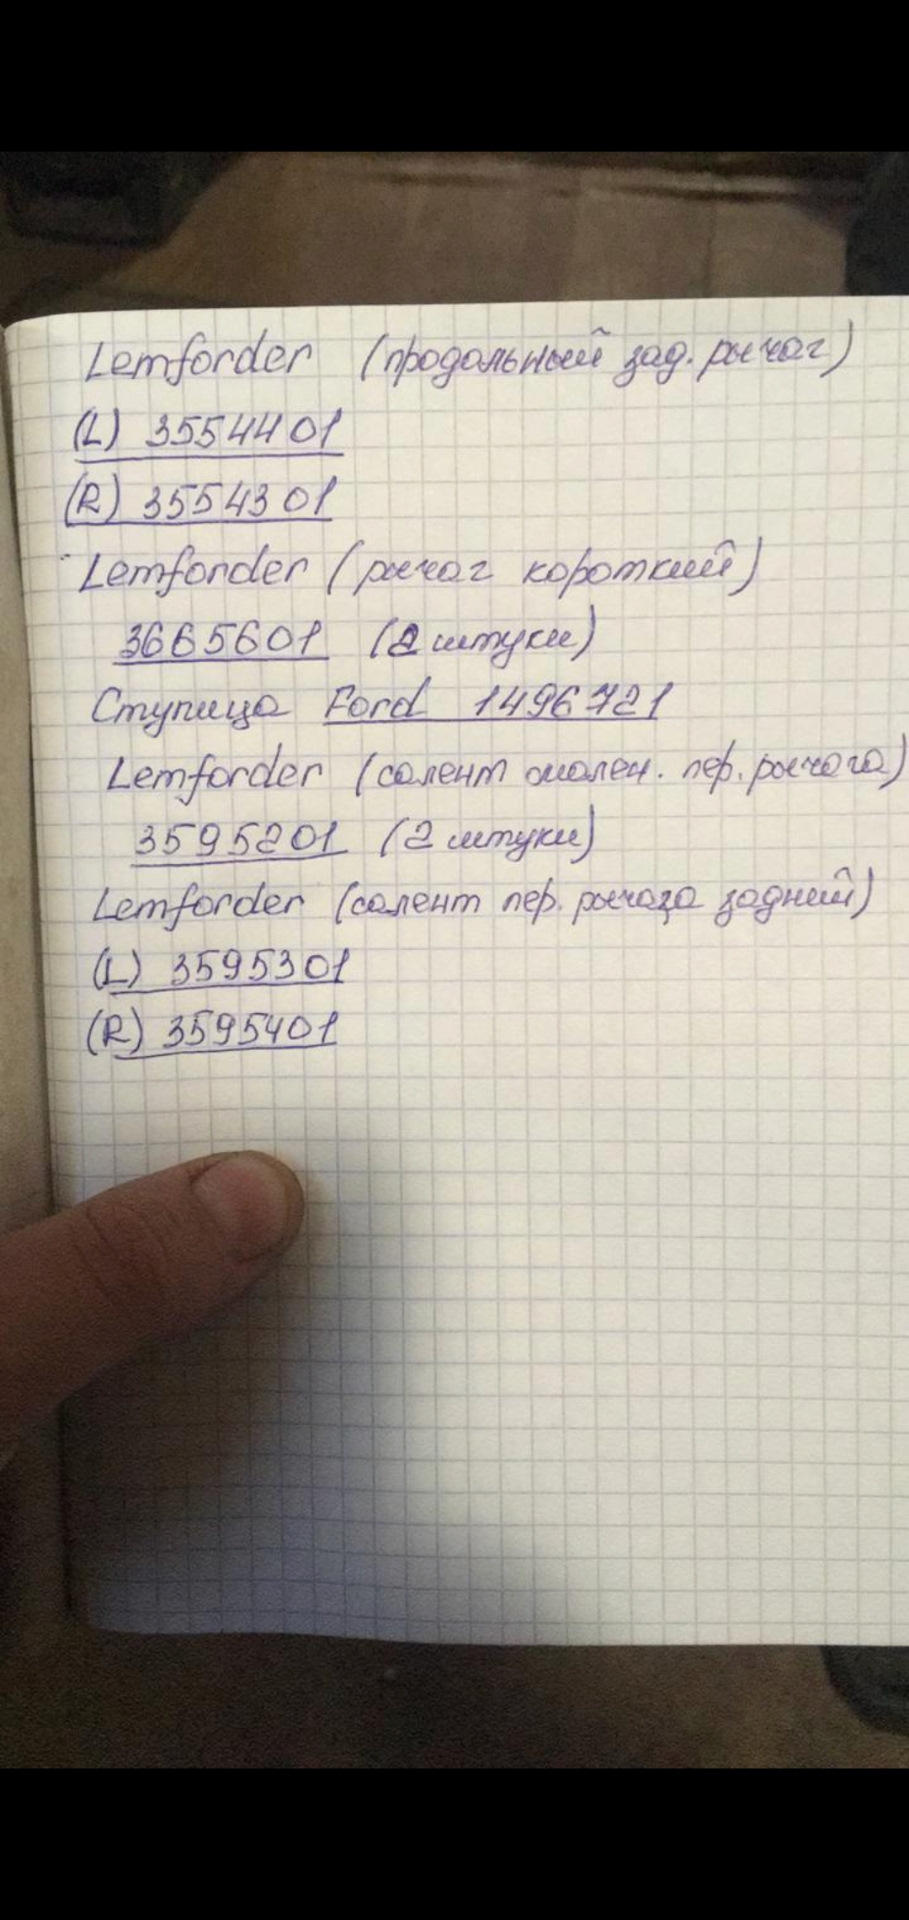 Lemforder (продольный зад. рычаг)
(L) 3554401
(R) 3554301
Lemforder (рычаг короткий)
3665601 (2 штуки)
Ступица Ford 1496721
Lemforder (салент мален. пер. рычага)
3595201 (2 штуки)
Lemforder (салент пер. рычага задний)
(L) 3595301
(R) 3595401